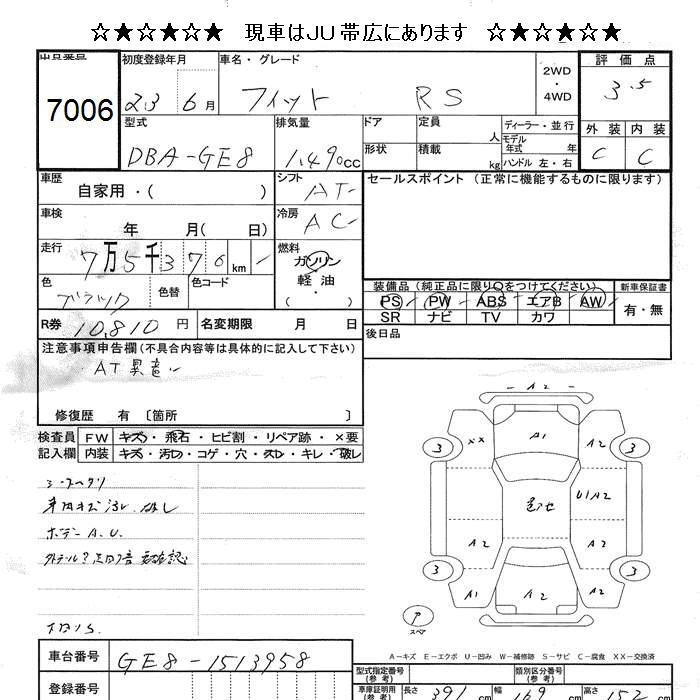 ☆★☆★☆☆ 現車はJU帯広にあります ☆★☆★☆☆
出品番号 初度登録年月 車名・グレード 2WD・4WD 評価点
7006 23 6月 フィット RS 3.5
型式 排気量 ドア 定員 人 ディーラー・並行 外装 内装
DBA-GE8 1.49 cc 形状 積載 kg モデル年式 年 ハンドル 左・右 C C
車歴 自家用・( ) シフト AT セールスポイント (正常に機能するものに限ります)
車検 年 月( 日) 冷房 AC
走行 7万5千376km 燃料 ガソリン 軽油 ・( )
色 ブラック 色替 色コード
装備品 (純正品に限り○をつけてください) 新車保証書
PS PW ABS エアB AW 有・無
SR ナビ TV カワ
R券 10,810円 名変期限 月 日 後日品
注意事項申告欄 (不具合内容等は具体的に記入して下さい)
AT異音
修復歴 有 〔箇所 〕
検査員 FW キズ・飛石・ヒビ割・リペア跡・×要
記入欄 内装 キズ・汚レ・コゲ・穴・スレ・キレ・破レ
ボデーA.U.
A2
XX A1 A2
3 3
U1A2
A2 A2
3 3
A1 A2 A2
スペア
A-キズ E-エクボ U-凹み W-補修跡 S-サビ C-腐食 XX-交換済
車台番号 GE8-1513958
登録番号
型式指定番号 (参考) 類別区分番号 (参考)
車庫証明用 (参考) 長さ 391 cm 幅 169 cm 高さ 152 cm